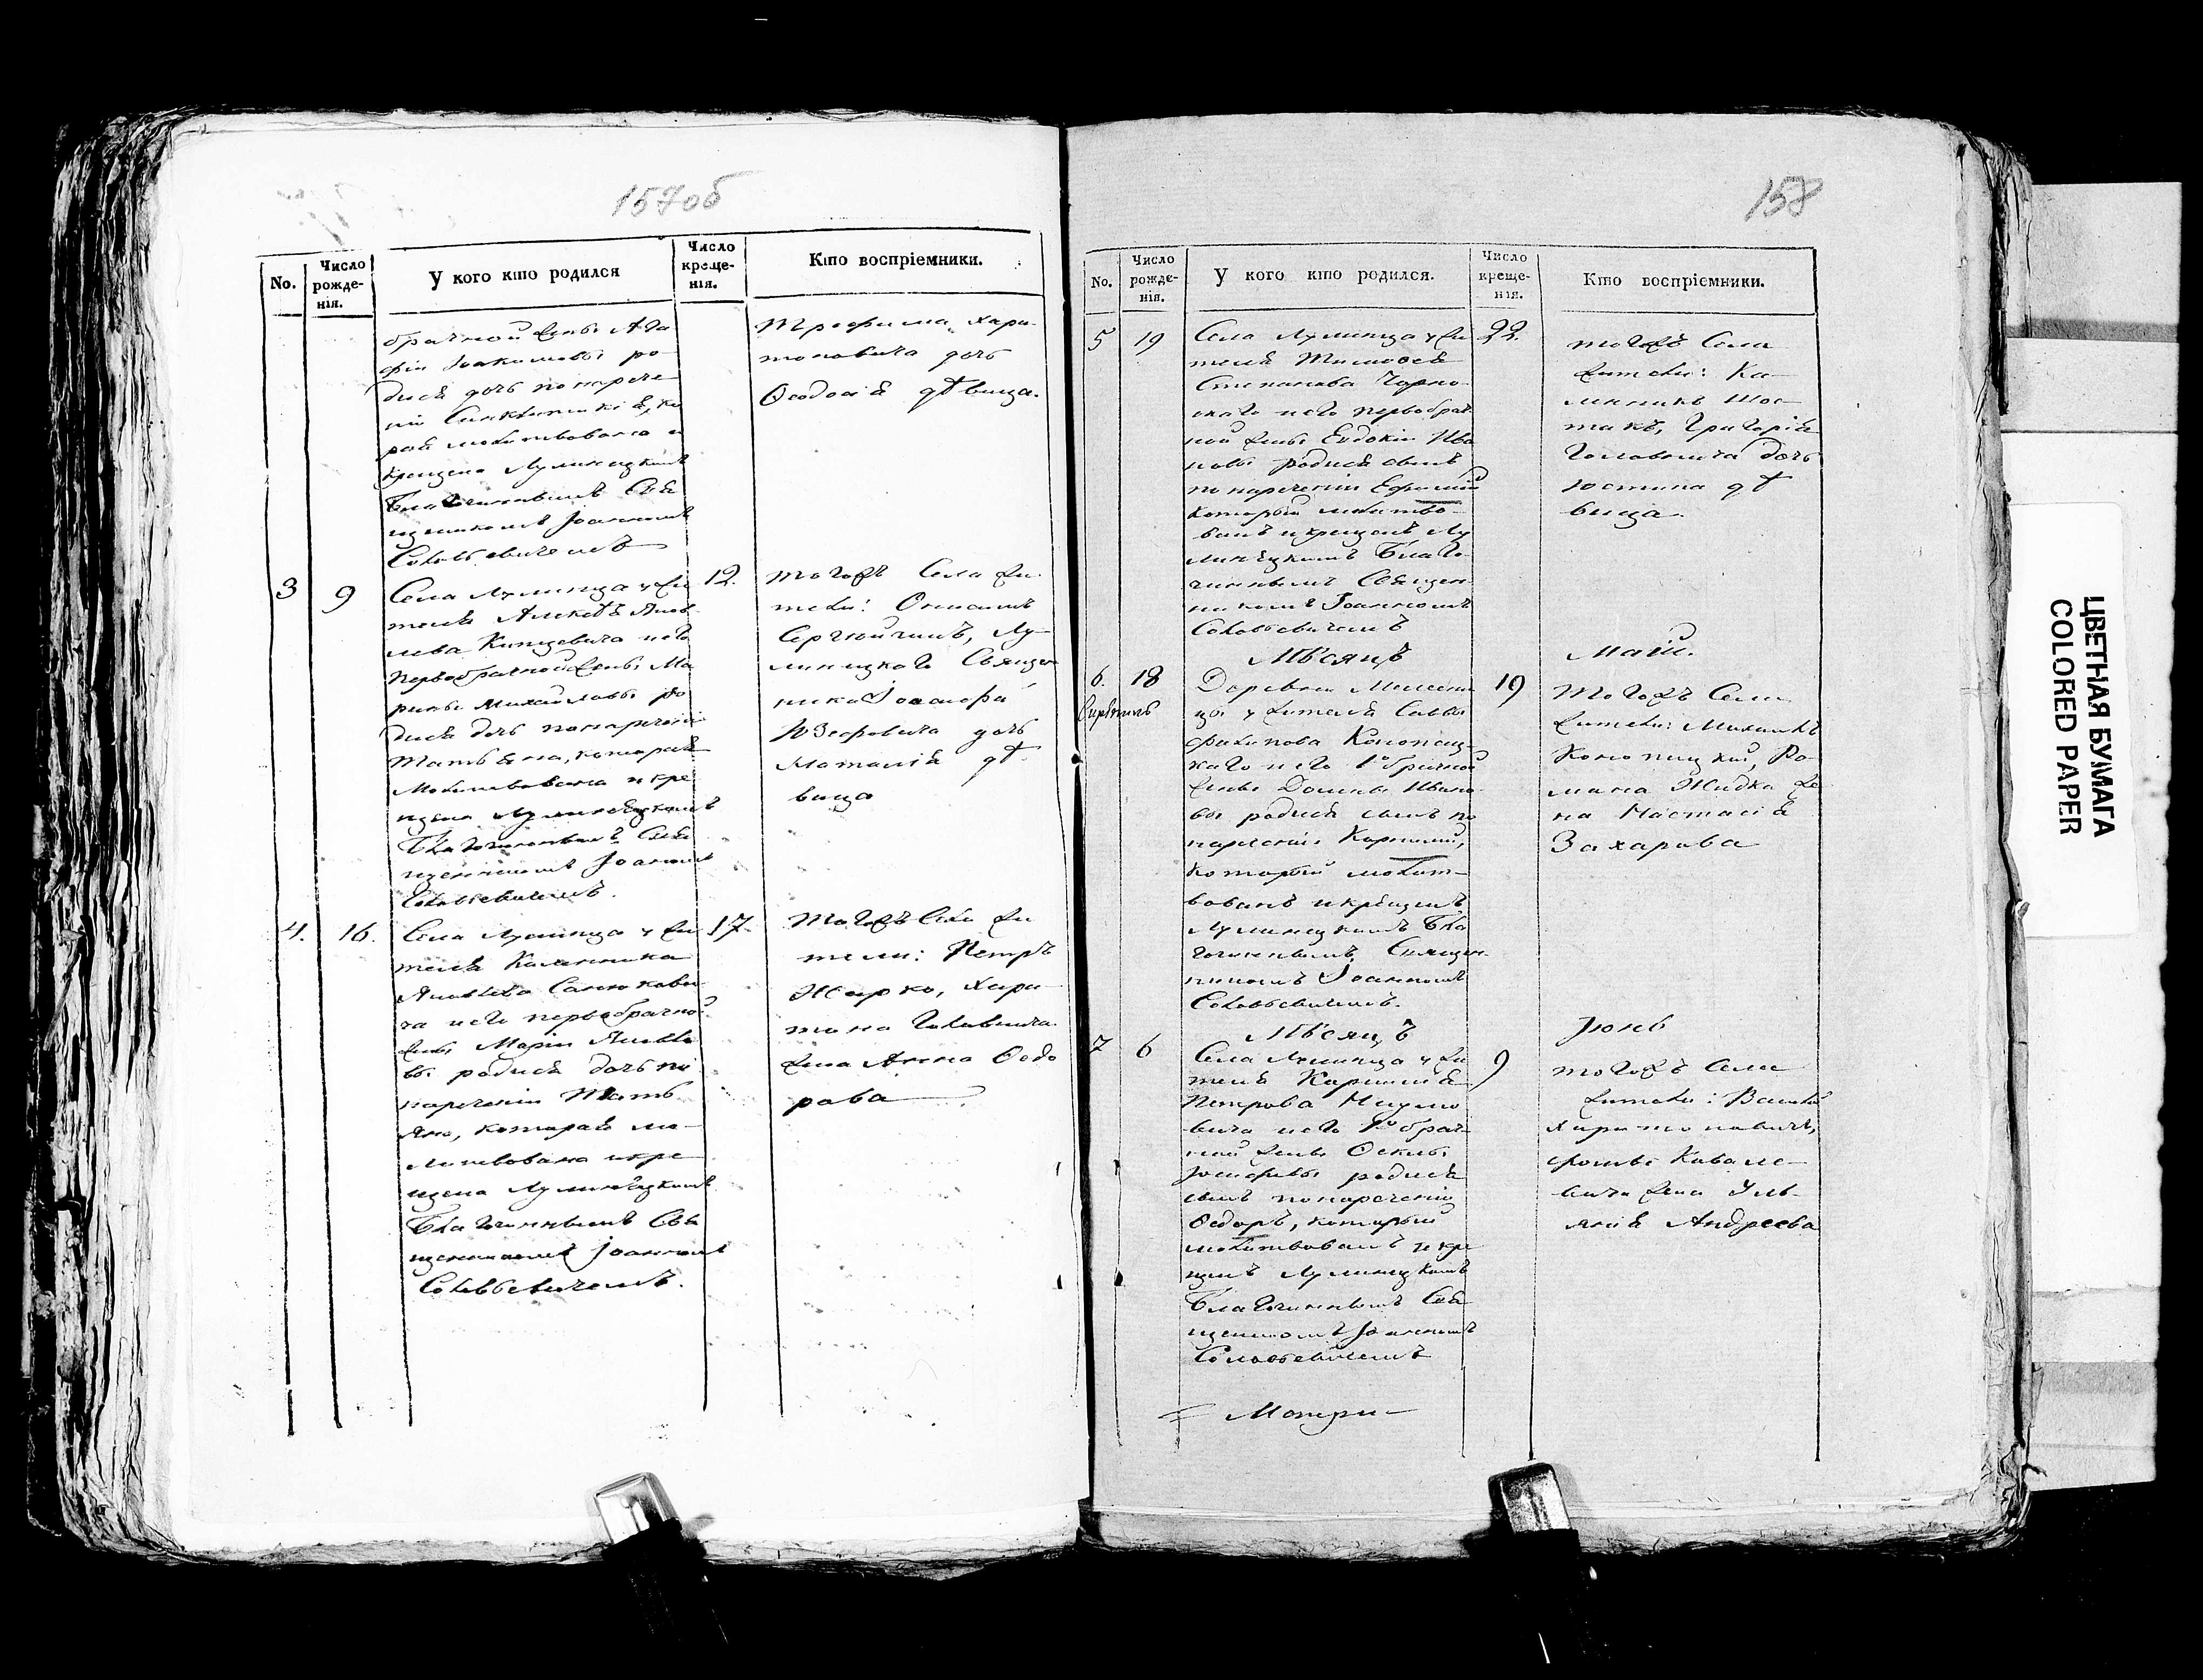 157об
No.
Число рожде-нія.
У кого кто родился
Число креще-нія.
Кто воспріемники.
брачной жены Ага
фіи Іоакимовы ро-
дися дочь по нарече
ніи Синклитикія, ко
рая молитвована и
крещена Лулинецкимъ
Благочиннымъ Свя
щенникомъ Іоанномъ
Соловьевичемъ
Трофима Хари-
тоновича дочь
Ѳеодосія дѣвица.
3 9
Села Лулинца у жи
теля Алексѣя Яков
лева Кунцевича и его
первобрачной жены Ма
рины Михайловы ро
дися дочь по наречені
Татьяна, которая
молитвована и кре
щена Лулинецкимъ
Благочиннымъ Свя
щенникомъ Іоанном
Соловьевичемъ.
12.
тогожъ Села жи
тели: Онисимъ
Сергіойчикъ, Лу-
линецкого Священ
ника Іосифа
Юзефовича дочь
Наталія дѣ-
вица
4. 16.
Села Лулинца у жи
теля Калинника
Яковлева Санюкови
ча и его первобрачной
жены Маріи Яковле
вы родися дочь по
наречені Тать
яна, которая мо-
литвована и кре
щена Лулинецкимъ
Благочиннымъ Свя
щенникомъ Іоанномъ
Соловьевичемъ.
17.
тогожъ Села жи
тели: Петръ
Жарко, Хари
тона Головнича
жена Анна Ѳедо
рова
158
No.
Число рожде-нія.
У кого кто родился.
Число креще-нія.
Кто воспріемники.
5 19
Села Лулинца у жи
теля Тимоѳея
Степанова Чорно-
окаго и его первобрач
ной жены Евдокіи Ива
новы родися сынъ
по нареченіи Ефимій
который молитво-
ванъ и крещенъ Лу
линецкимъ Благо-
чиннымъ Священ
никомъ Іоанномъ
Соловьевичемъ
22.
тогожъ Села
жители: Ка-
линикъ Шос-
такъ, Григорія
Головнича дочь
Юстина дѣ
вица.
Мѣсяцъ Маій.
6. 18
Деревни
цы у жителя Саввы
Филипова Конопац-
каго и его 1о брачной
жены Домны Ивано
вы родися сынъ по
нареченіи Корнилій,
который молит-
вованъ и крещенъ
Лулинецкимъ Бла
гочиннымъ Священ-
никомъ Іоанномъ
Соловьевичемъ.
19
Тогожъ Села
жители: Михаилъ
Конопацкій, Ро-
мана Жидка же
на Настасія
Захарова
Мѣсяцъ Іюнь
7 6
Села Лулинца у жи
теля Корнилія
Петрова Наумо
вича и его 1о брач-
ной жены Ѳеклы
Іосифовы родися
сынъ по нареченію
Ѳедоръ, который
молитвованъ и кре
щенъ Лулинецкимъ
Благочиннымъ Свя
щенникомъ Іоанномъ
Соловьевичемъ
9
тогожъ Села
жители: Василій
Харитоновичъ,
Фомы Ковале-
вича жена Уль-
янія Андреева
ЦВЕТНАЯ БУМАГА
COLORED PAPER